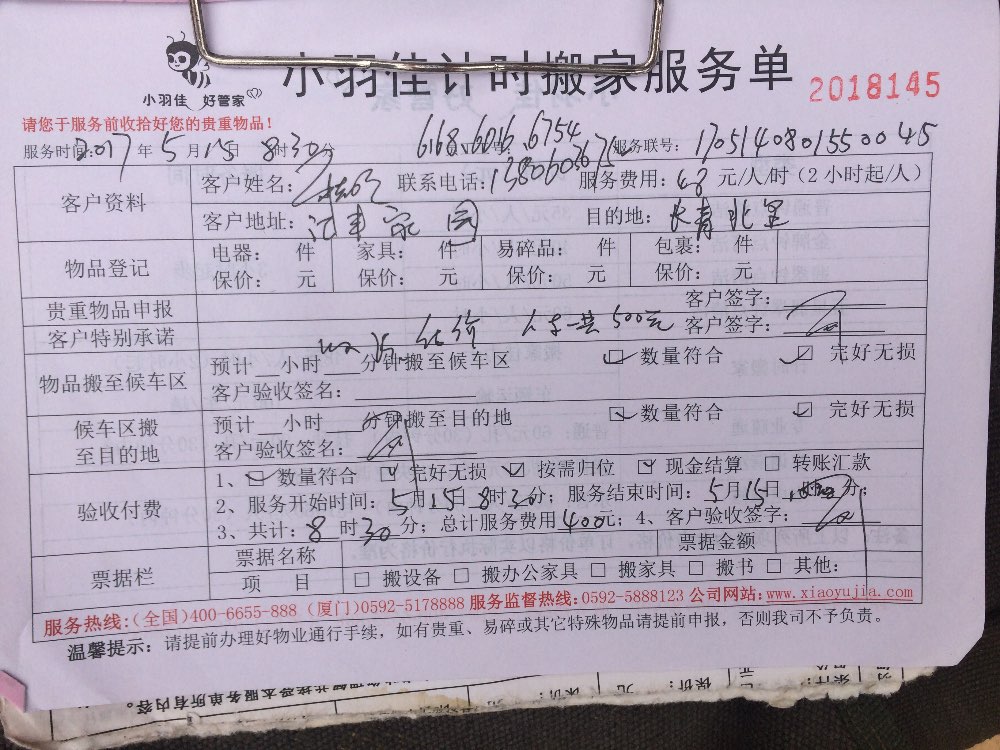 小羽佳计时搬家服务单
小羽佳 好管家
2018145
请您于服务前收拾好您的贵重物品!
服务时间: 2017 年 5 月 15 日 8 时 30 分 6168.6016.6754 服务联号: 1705140801550045
客户资料 客户姓名: 联系电话: 服务费用: 48 元/人/时(2小时起/人)
客户地址: 家园 目的地: 长青北里
物品登记 电器: 件 家具: 件 易碎品: 件 包裹: 件
保价: 元 保价: 元 保价: 元 保价: 元
贵重物品申报 客户签字:
客户特别承诺 估价 一共500元 客户签字:
物品搬至候车区 预计 小时 分钟搬至候车区 数量符合 完好无损
客户验收签名:
候车区搬至目的地 预计 小时 分钟搬至目的地 数量符合 完好无损
客户验收签名:
验收付费 1、 数量符合 完好无损 按需归位 现金结算 转账汇款
2、服务开始时间: 5月15日8时30分; 服务结束时间: 5月15日 分;
3、共计: 8 时 30 分; 总计服务费用 400 元; 4、客户验收签字:
票据栏 票据名称 票据金额
项 目 搬设备 搬办公家具 搬家具 搬书 其他:
服务热线:(全国)400-6655-888 (厦门)0592-5178888 服务监督热线:0592-5888123 公司网站:www.xiaoyujia.com
温馨提示: 请提前办理好物业通行手续,如有贵重、易碎或其它特殊物品请提前申报,否则我司不予负责。